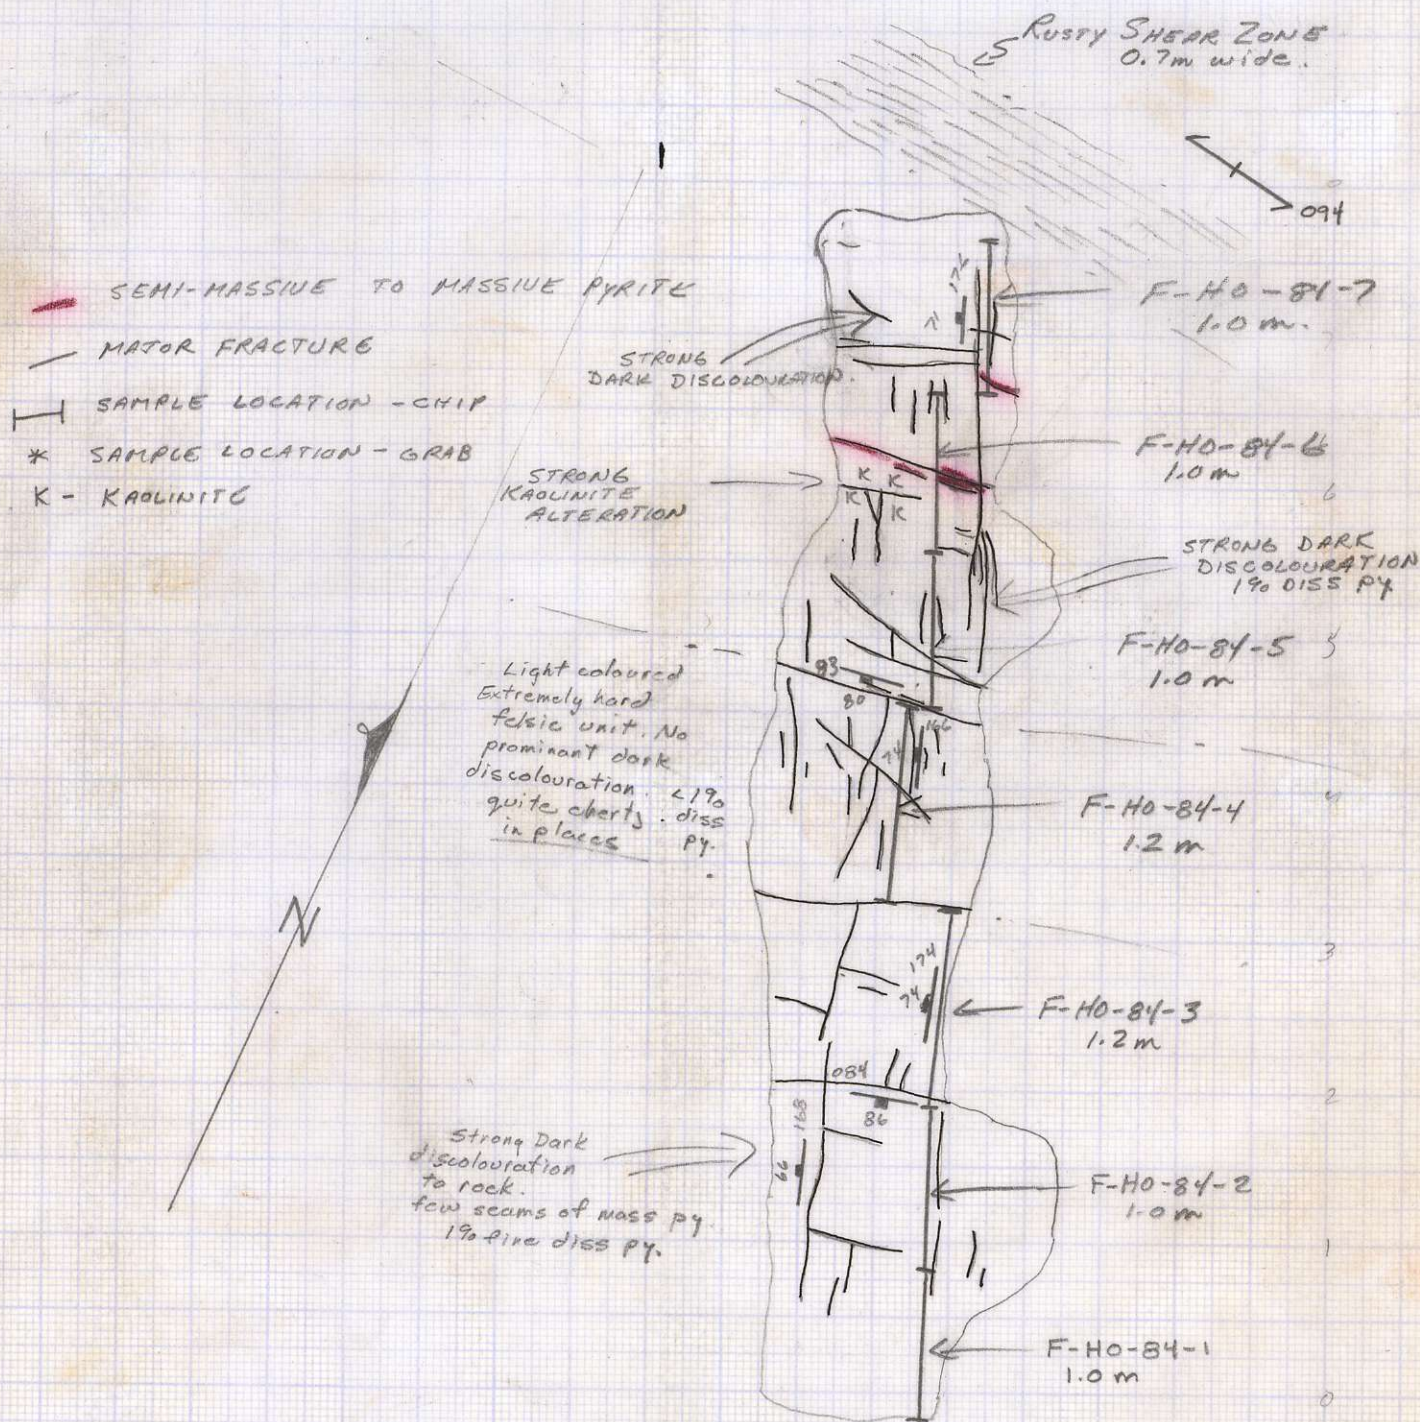 RUSTY SHEAR ZONE
0.7m wide.
094
SEMI-MASSIVE TO MASSIVE PYRITE
MAJOR FRACTURE
SAMPLE LOCATION - CHIP
* SAMPLE LOCATION - GRAB
K - KAOLINITE
STRONG
DARK DISCOLOURATION.
176
71
F-HO-84-7
1.0 m.
7
F-HO-84-6
1.0 m
6
STRONG
KAOLINITE
ALTERATION
K K
K K
K
STRONG DARK
DISCOLOURATION
1% DISS PY
F-HO-84-5
1.0 m
5
83
80
Light coloured
Extremely hard
felsic unit. No
prominant dark
discolouration. <1%
quite cherty. diss
in places py.
166
74
F-HO-84-4
1.2 m
4
3
174
74
F-HO-84-3
1.2 m
084
86
2
168
66
Strong Dark
discolouration
to rock.
few seams of mass py.
1% fine diss py.
F-HO-84-2
1.0 m
1
F-HO-84-1
1.0 m
0
N